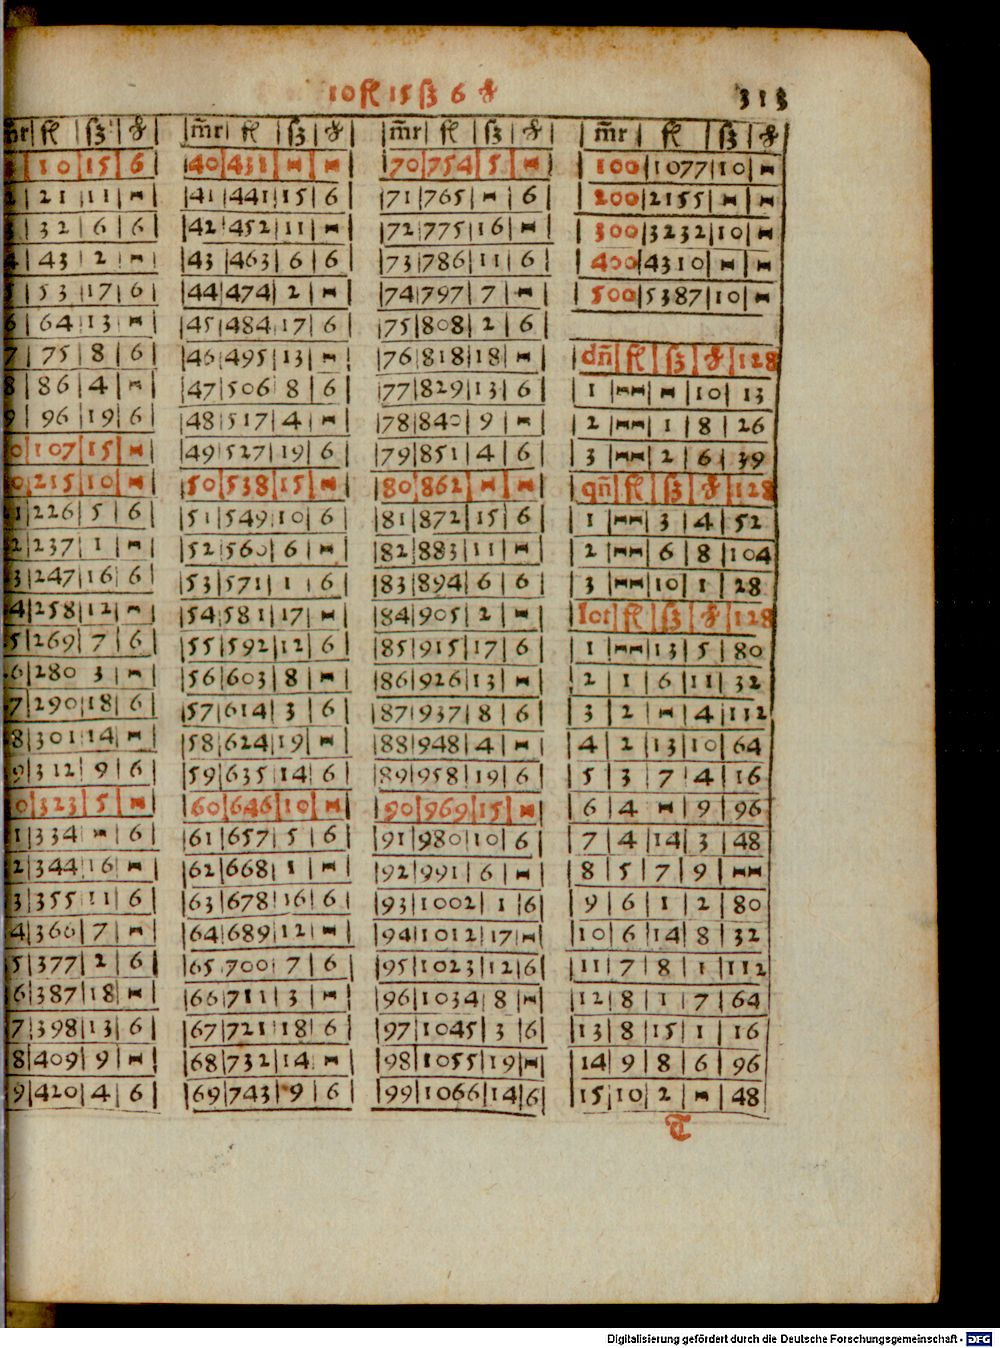 10 fl 15 ß 6 ₰ 313
m̃r | fl | ß | ₰ | m̃r | fl | ß | ₰ | m̃r | fl | ß | ₰ | m̃r | fl | ß | ₰
10 | 15 | 6 | 40 | 431 | - | - | 70 | 754 | 5 | - | 100 | 1077 | 10 | -
2 | 21 | 11 | - | 41 | 441 | 15 | 6 | 71 | 765 | - | 6 | 200 | 2155 | - | -
3 | 32 | 6 | 6 | 42 | 452 | 11 | - | 72 | 775 | 16 | - | 300 | 3232 | 10 | -
4 | 43 | 2 | - | 43 | 463 | 6 | 6 | 73 | 786 | 11 | 6 | 400 | 4310 | - | -
5 | 53 | 17 | 6 | 44 | 474 | 2 | - | 74 | 797 | 7 | - | 500 | 5387 | 10 | -
6 | 64 | 13 | - | 45 | 484 | 17 | 6 | 75 | 808 | 2 | 6
7 | 75 | 8 | 6 | 46 | 495 | 13 | - | 76 | 818 | 18 | - | dñ | fl | ß | ₰ | 128
8 | 86 | 4 | - | 47 | 506 | 8 | 6 | 77 | 829 | 13 | 6 | 1 | - | - | 10 | 13
9 | 96 | 19 | 6 | 48 | 517 | 4 | - | 78 | 840 | 9 | - | 2 | - | 1 | 8 | 26
0 | 107 | 15 | - | 49 | 527 | 19 | 6 | 79 | 851 | 4 | 6 | 3 | - | 2 | 6 | 39
0 | 215 | 10 | - | 50 | 538 | 15 | - | 80 | 862 | - | - | qñ | fl | ß | ₰ | 128
1 | 226 | 5 | 6 | 51 | 549 | 10 | 6 | 81 | 872 | 15 | 6 | 1 | - | 3 | 4 | 52
2 | 237 | 1 | - | 52 | 560 | 6 | - | 82 | 883 | 11 | - | 2 | - | 6 | 8 | 104
3 | 247 | 16 | 6 | 53 | 571 | 1 | 6 | 83 | 894 | 6 | 6 | 3 | - | 10 | 1 | 28
4 | 258 | 12 | - | 54 | 581 | 17 | - | 84 | 905 | 2 | - | lot | fl | ß | ₰ | 128
5 | 269 | 7 | 6 | 55 | 592 | 12 | 6 | 85 | 915 | 17 | 6 | 1 | - | 13 | 5 | 80
6 | 280 | 3 | - | 56 | 603 | 8 | - | 86 | 926 | 13 | - | 2 | 1 | 6 | 11 | 32
7 | 290 | 18 | 6 | 57 | 614 | 3 | 6 | 87 | 937 | 8 | 6 | 3 | 2 | - | 4 | 112
8 | 301 | 14 | - | 58 | 624 | 19 | - | 88 | 948 | 4 | - | 4 | 2 | 13 | 10 | 64
9 | 312 | 9 | 6 | 59 | 635 | 14 | 6 | 89 | 958 | 19 | 6 | 5 | 3 | 7 | 4 | 16
0 | 323 | 5 | - | 60 | 646 | 10 | - | 90 | 969 | 15 | - | 6 | 4 | - | 9 | 96
1 | 334 | - | 6 | 61 | 657 | 5 | 6 | 91 | 980 | 10 | 6 | 7 | 4 | 14 | 3 | 48
2 | 344 | 16 | - | 62 | 668 | 1 | - | 92 | 991 | 6 | - | 8 | 5 | 7 | 9 | -
3 | 355 | 11 | 6 | 63 | 678 | 16 | 6 | 93 | 1002 | 1 | 6 | 9 | 6 | 1 | 2 | 80
4 | 366 | 7 | - | 64 | 689 | 12 | - | 94 | 1012 | 17 | - | 10 | 6 | 14 | 8 | 32
5 | 377 | 2 | 6 | 65 | 700 | 7 | 6 | 95 | 1023 | 12 | 6 | 11 | 7 | 8 | 1 | 112
6 | 387 | 18 | - | 66 | 711 | 3 | - | 96 | 1034 | 8 | - | 12 | 8 | 1 | 7 | 64
7 | 398 | 13 | 6 | 67 | 721 | 18 | 6 | 97 | 1045 | 3 | 6 | 13 | 8 | 15 | 1 | 16
8 | 409 | 9 | - | 68 | 732 | 14 | - | 98 | 1055 | 19 | - | 14 | 9 | 8 | 6 | 96
9 | 420 | 4 | 6 | 69 | 743 | 9 | 6 | 99 | 1066 | 14 | 6 | 15 | 10 | 2 | - | 48
T
Digitalisierung gefördert durch die Deutsche Forschungsgemeinschaft - DFG